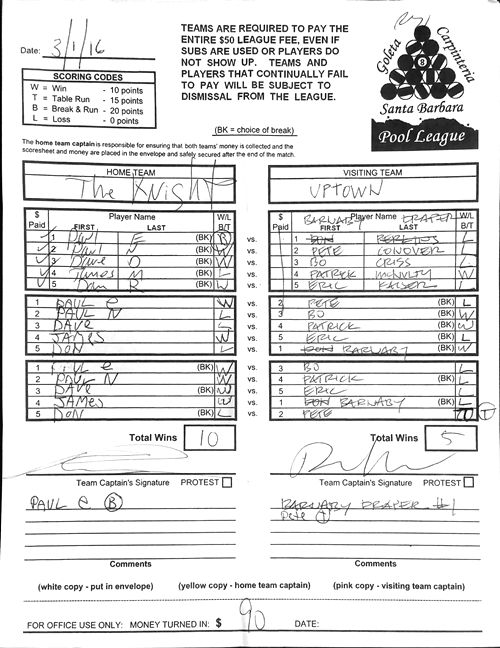 Date: 3/1/16
SCORING CODES
W = Win - 10 points
T = Table Run - 15 points
B = Break & Run - 20 points
L = Loss - 0 points
TEAMS ARE REQUIRED TO PAY THE
ENTIRE $50 LEAGUE FEE, EVEN IF
SUBS ARE USED OR PLAYERS DO
NOT SHOW UP. TEAMS AND
PLAYERS THAT CONTINUALLY FAIL
TO PAY WILL BE SUBJECT TO
DISMISSAL FROM THE LEAGUE.
(BK = choice of break)
Goleta Carpinteria
8
Santa Barbara
Pool League
The home team captain is responsible for ensuring that both teams' money is collected and the
scoresheet and money are placed in the envelope and safely secured after the end of the match.
HOME TEAM
The Knight
VISITING TEAM
UPTOWN
$ Paid Player Name FIRST LAST W/L B/T
1 Paul E (BK) B
2 Paul N (BK) W
3 Dave D (BK) W
4 James M (BK) L
5 Dan R (BK) L
vs.
vs.
vs.
vs.
vs.
$ Paid Player Name FIRST LAST W/L B/T
BARNABY DRAPER
1 L
2 PETE CONOVER L
3 BO CRISS L
4 PATRICK McNULTY W
5 ERIC W
1 PAUL e W
2 PAUL N L
3 DAVE L
4 JAMES W
5 DON L
vs.
vs.
vs.
vs.
vs.
2 PETE (BK) L
3 BO (BK) W
4 PATRICK (BK) W
5 ERIC (BK) L
1 BARNABY (BK) W
1 PAUL e (BK) W
2 PAUL N W
3 DAVE (BK) W
4 JAMES (BK) W
5 DON (BK) L
vs.
vs.
vs.
vs.
vs.
3 BO L
4 PATRICK (BK) L
5 ERIC L
1 BARNABY L
2 PETE T
Total Wins 10
Total Wins 5
Team Captain's Signature PROTEST
Team Captain's Signature PROTEST
PAUL e B
BARNABY DRAPER #1
Pete T
Comments
Comments
(white copy - put in envelope) (yellow copy - home team captain) (pink copy - visiting team captain)
FOR OFFICE USE ONLY: MONEY TURNED IN: $ 90 DATE: